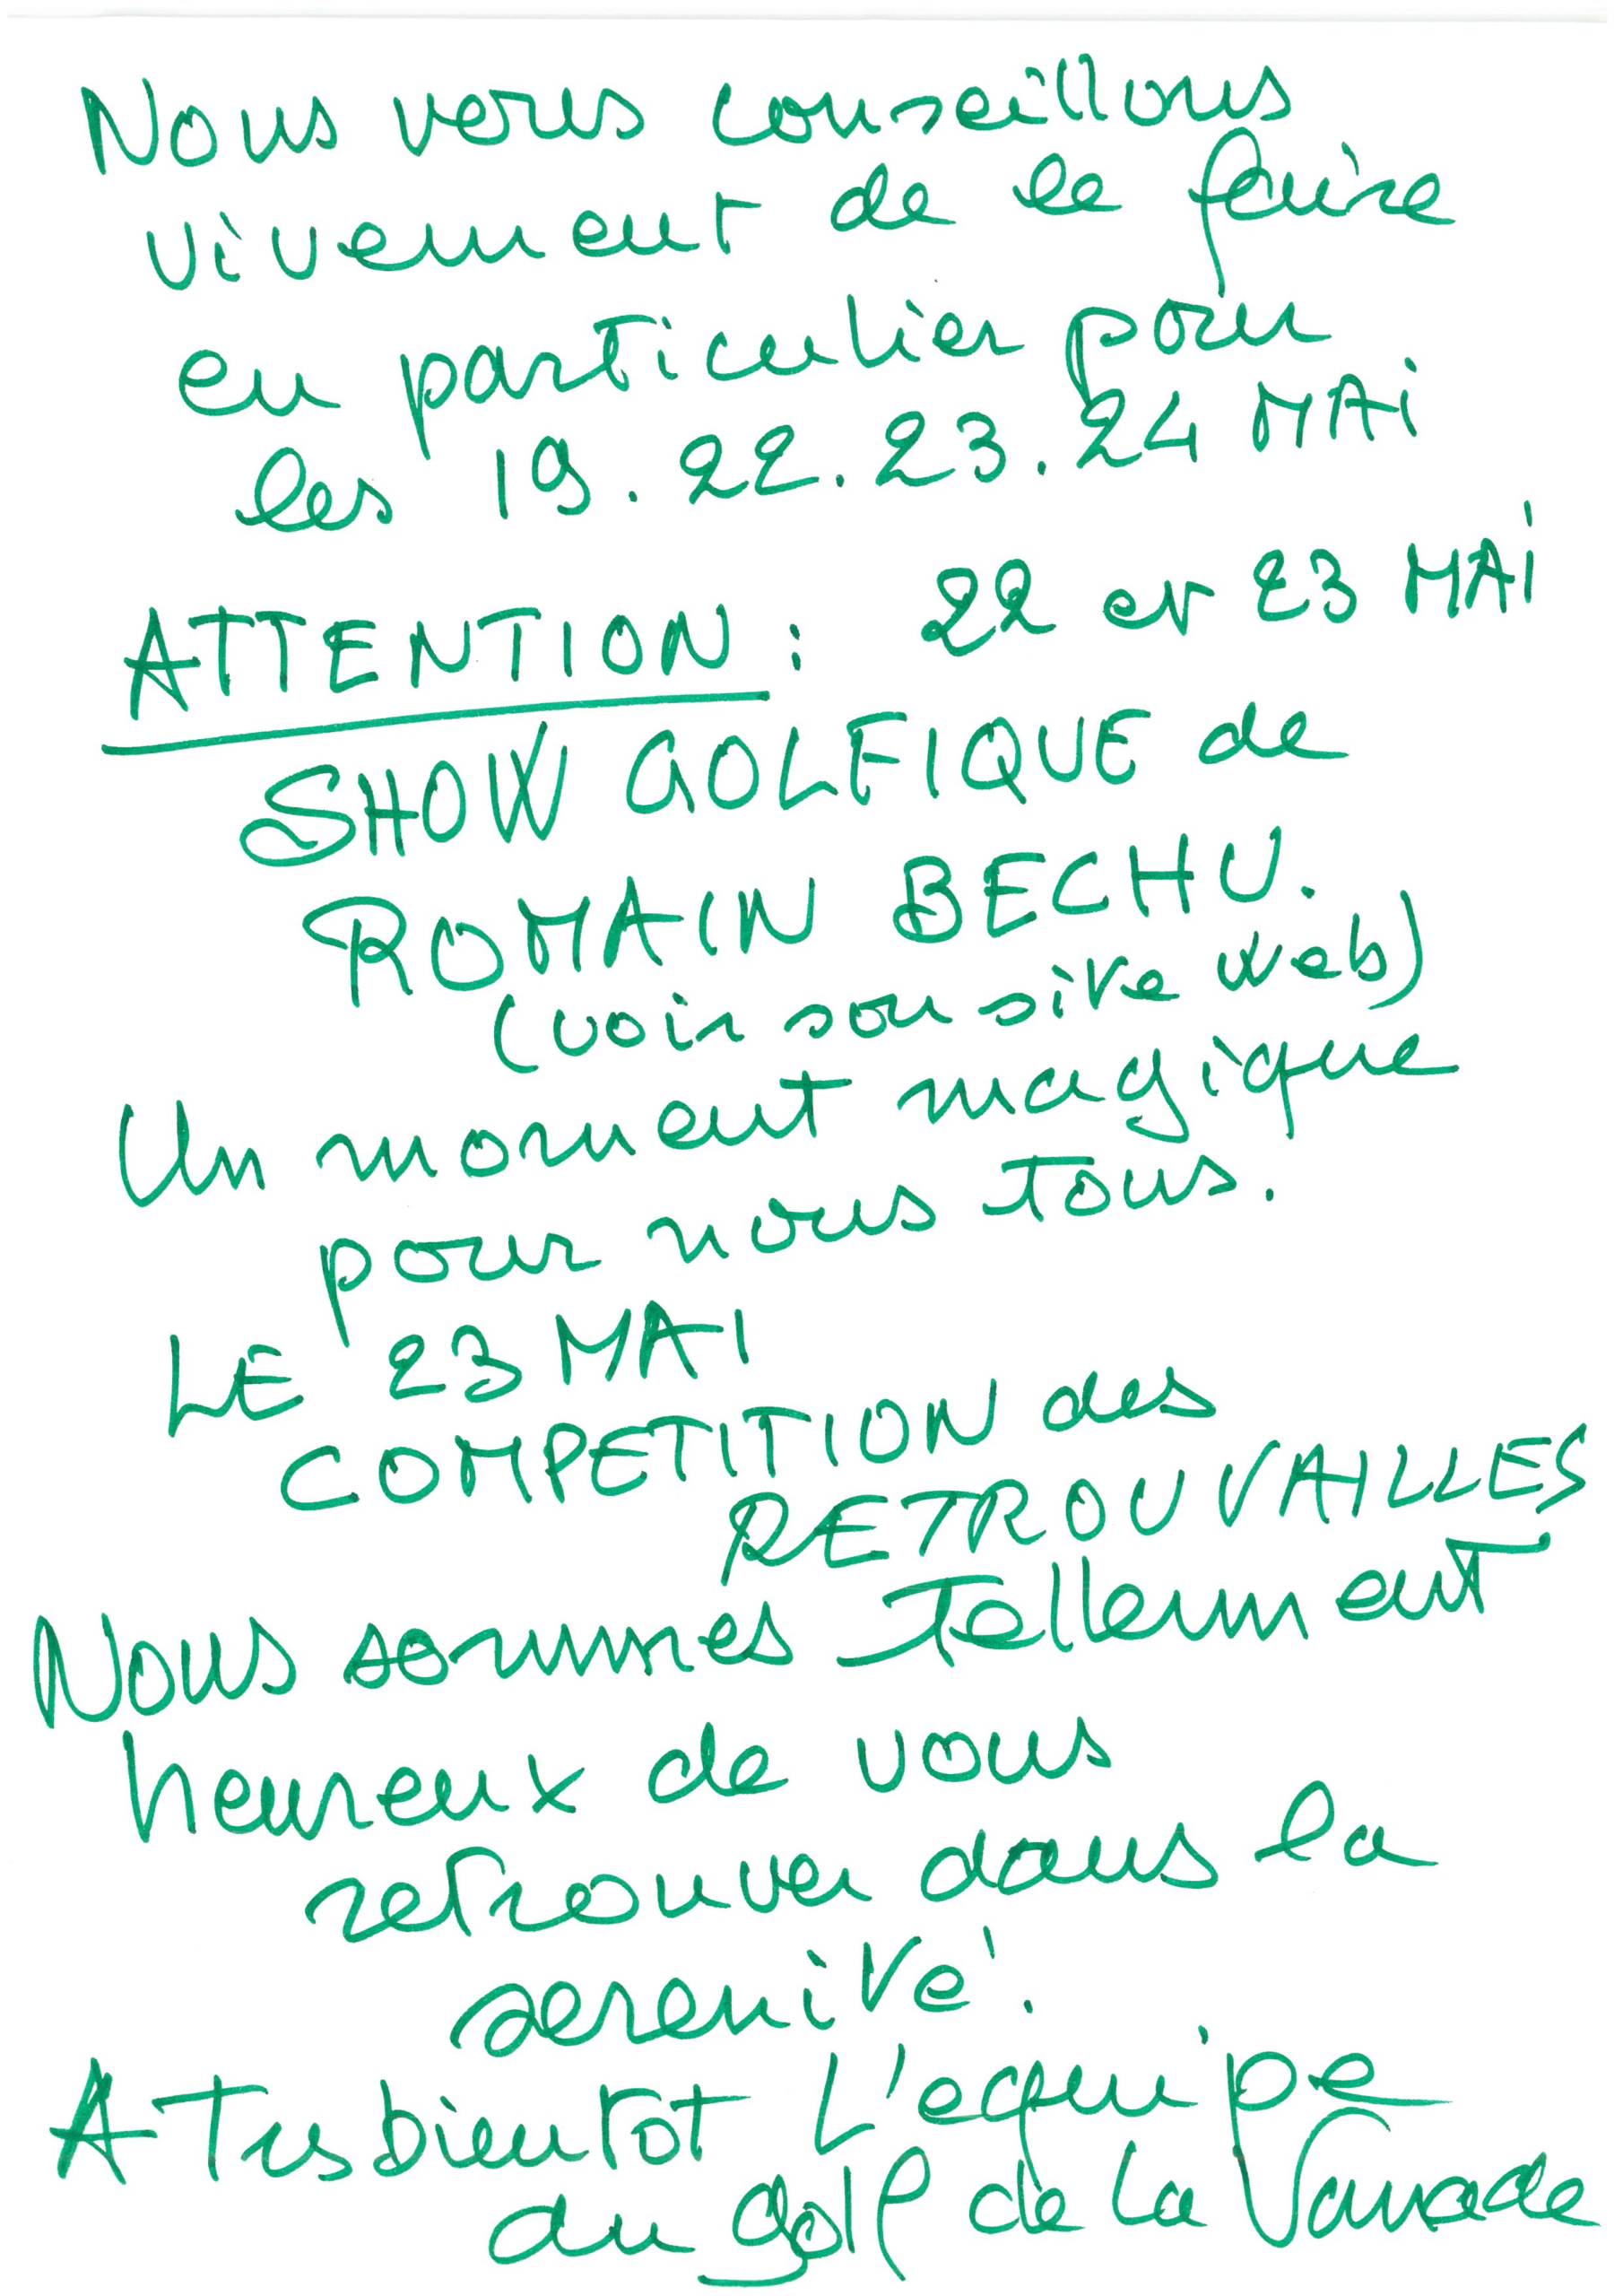 Nous vous conseillons
vivement de le faire
en particulier pour
les 19.22.23.24 MAi
ATTENTION : 22 et 23 MAi
SHOW GOLFIQUE de
ROMAIN BECHU.
(voir son site web)
Un moment magique
pour nous tous.
LE 23 MAI
COMPETITION des
RETROUVAILLES
Nous sommes Tellement
heureux de vous
retrouver dans la
serenité.
A Tres bientot L'equipe
du golf de la Vanade